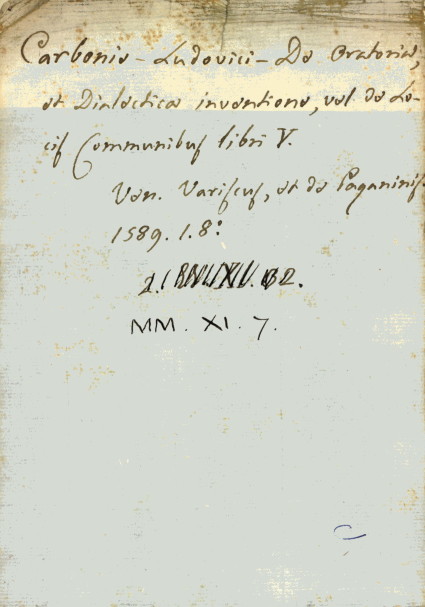 Carbonis - Ludovici - De Oratoria,
et Dialectica inventione, vel de Lo-
cis Communibus libri V.
Ven. Variscus, et de Paganinis.
1589. 1. 8º.
MM. XI. 7.